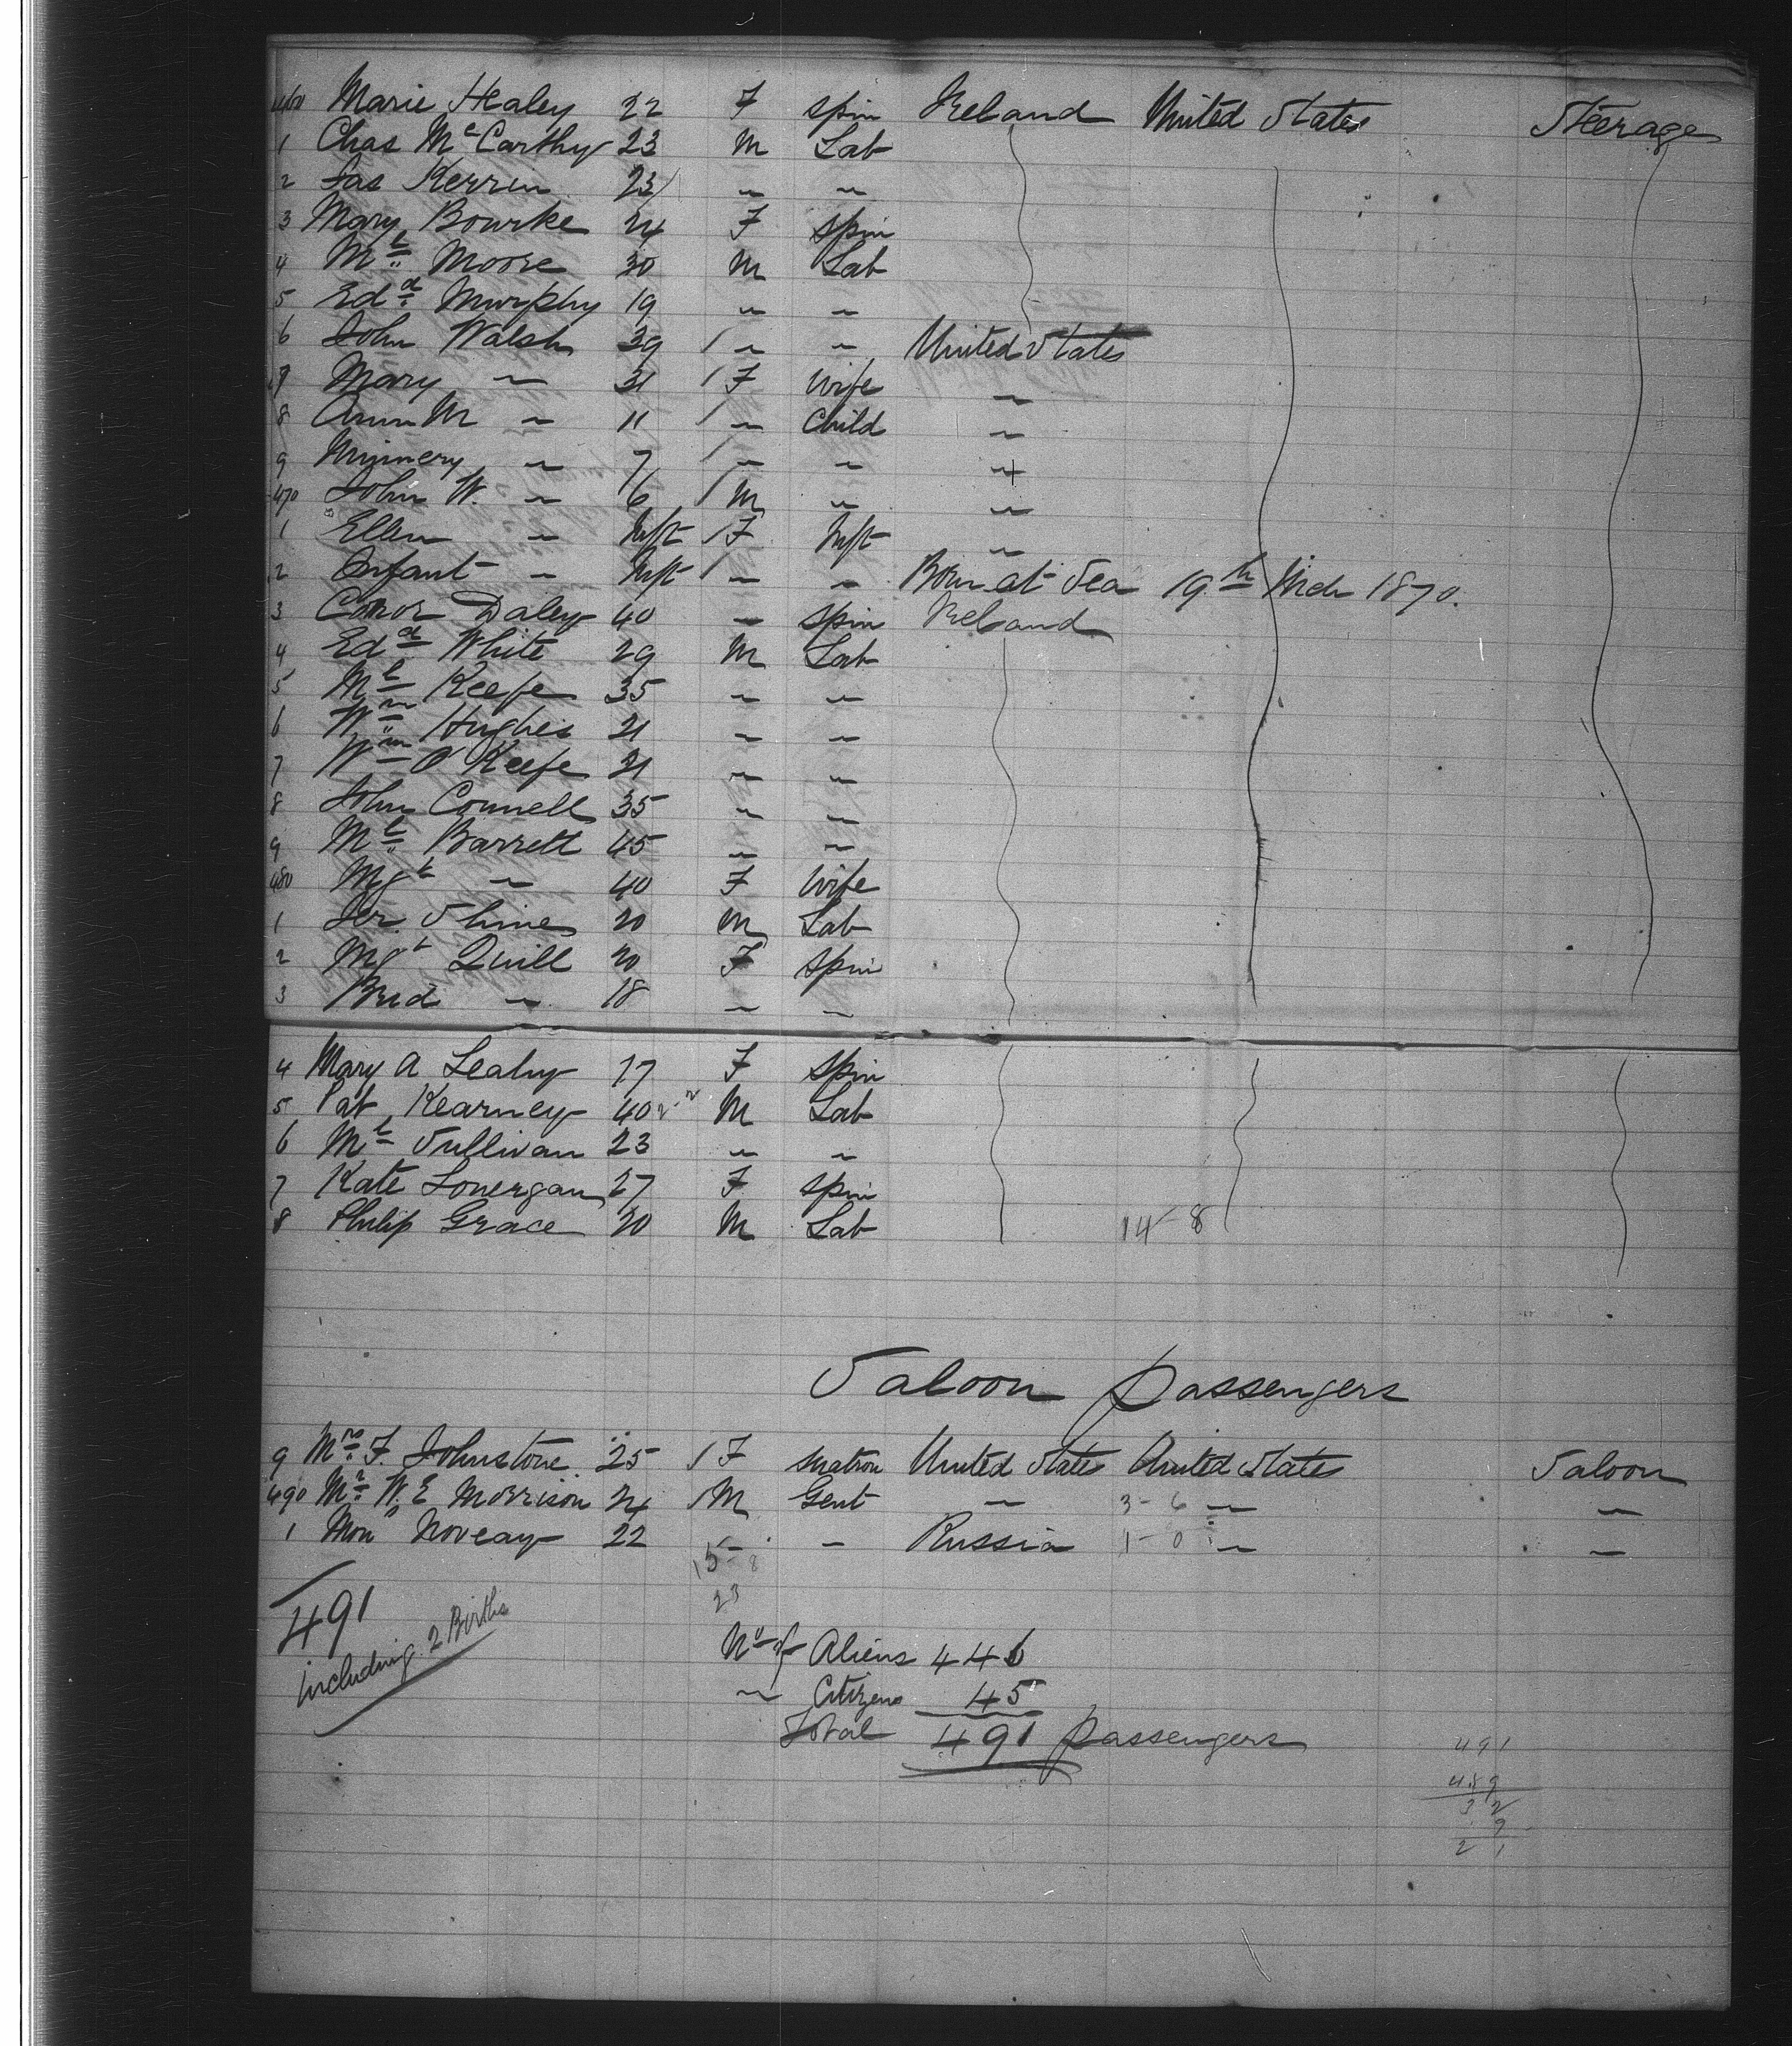 460 Marie Healey 22 F Spin Ireland United States Steerage
1 Chas McCarthy 23 M Lab
2 Jas Kerrin 23 " "
3 Mary Bourke 24 F Spin
4 Ml Moore 30 M Lab
5 Edd Murphy 19 " "
6 John Walsh 39 / " " United States
7 Mary " 31 / F Wife "
8 Ann M " 11 / " Child "
9 " 7 / " " "
470 John W. " 6 / M " "
1 Ellen " Inft / F Inft "
2 Infant " Inft / " " Born at Sea 19th Mch 1870.
3 Daley 40 " Spin Ireland
4 Edd White 29 M Lab
5 Ml Keefe 35 " "
6 Wm Hughes 21 " "
7 Wm O'Keefe 21 " "
8 John Connell 35 " "
9 Ml Barrett 45 " "
480 Mgt " 40 F Wife
1 Jer. Shine 20 M Lab
2 Mgt Quill 20 F Spin
3 Brid " 18 " "
4 Mary A Leahy 17 F Spin
5 Pat Kearney 40 M Lab
6 Ml Sullivan 23 " "
7 Kate Lonergan 27 F Spin
8 Philip Grace 20 M Lab 14-8
Saloon Passengers
9 Mrs. F. Johnstone 25 / F Matron United States United States Saloon
490 Mr. W. E Morrison 24 / M Gent " 3-6 " "
1 Mon Noveay 22 " " Russia 1-0 " "
15-8
23
491
including 2 Births
No of Aliens 446
" Citizens 45
Total 491 Passengers
491
489
3 2
9
2 1